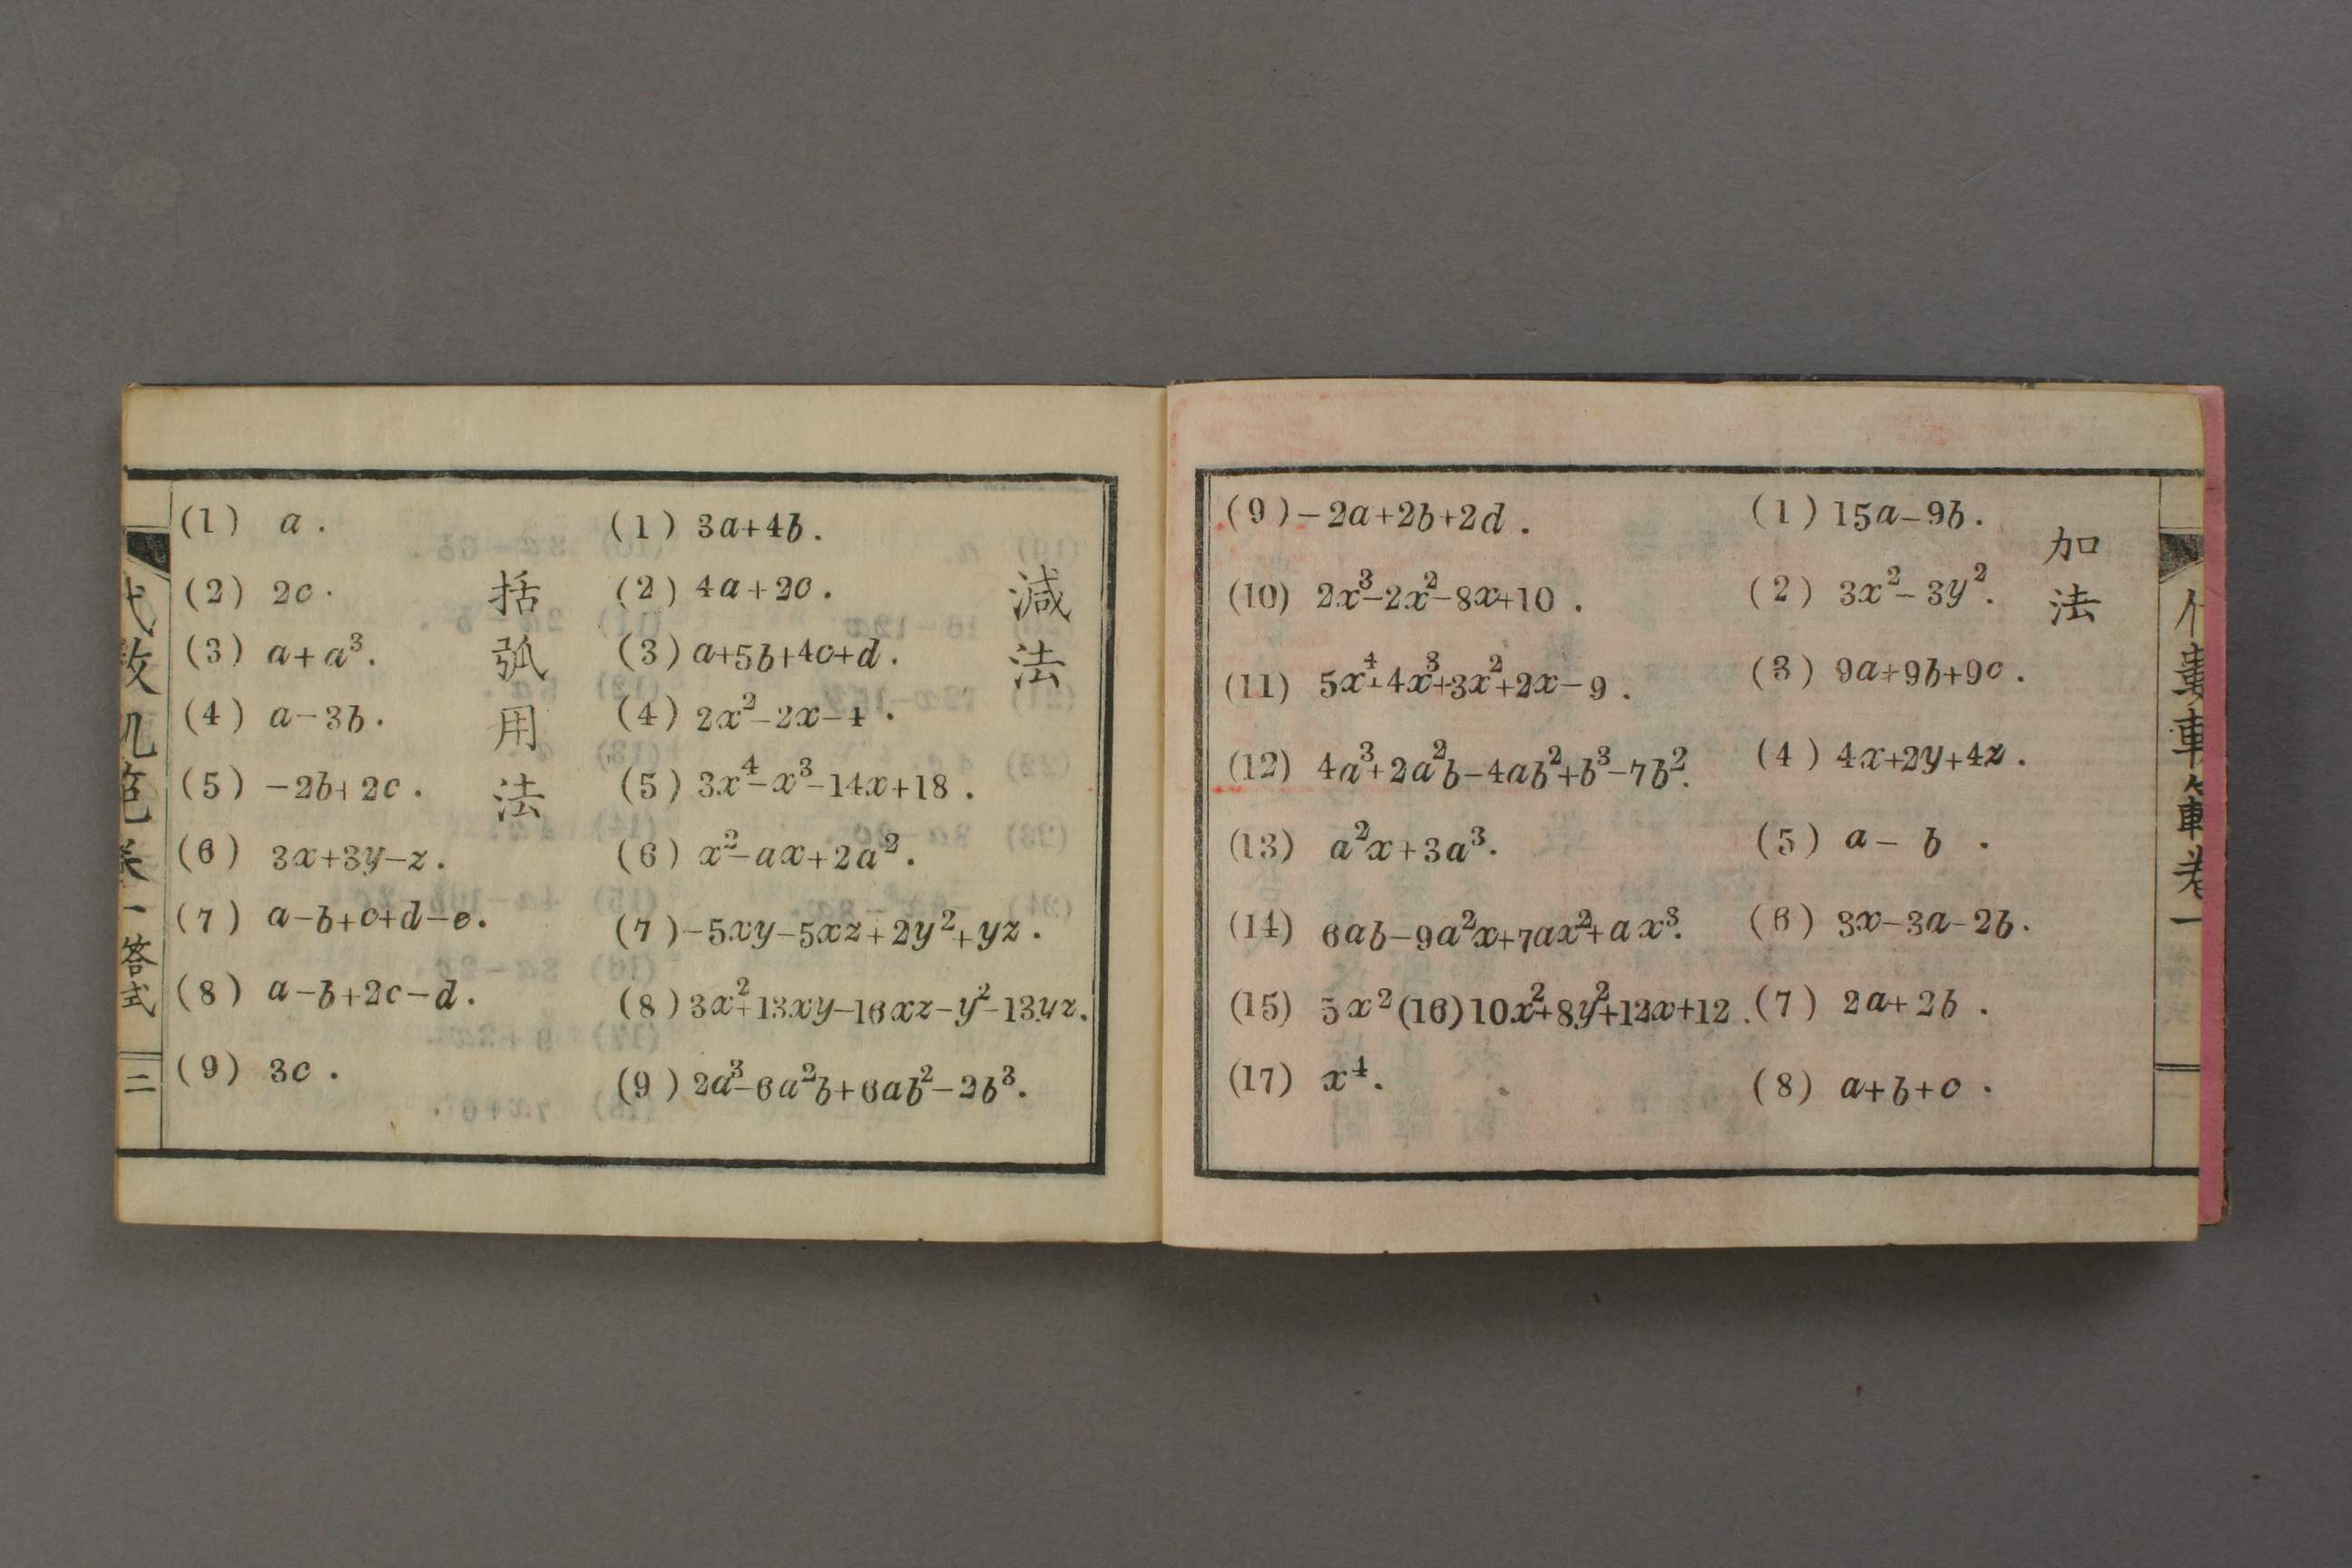 加法
(1) 15a-9b.
(2) 3x²-3y².
(3) 9a+9b+9c.
(4) 4x+2y+4z.
(5) a- b .
(6) 3x-3a-2b.
(7) 2a+2b.
(8) a+b+c.
(9) -2a+2b+2d.
(10) 2x³-2x²-8x+10.
(11) 5x⁴+4x³+3x²+2x-9.
(12) 4a³+2a²b-4ab²+b³-7b².
(13) a²x+3a³.
(14) 6ab-9a²x+7ax²+ax³.
(15) 5x² (16) 10x²+8y²+12x+12.
(17) x⁴.
減法
(1) 3a+4b.
(2) 4a+2c.
(3) a+5b+4c+d.
(4) 2x²-2x-1.
(5) 3x⁴-x³-14x+18.
(6) x²-ax+2a².
(7) -5xy-5xz+2y²+yz.
(8) 3x²+13xy-16xz-y²-13yz.
(9) 2a³-6a²b+6ab²-2b³.
括弧用法
(1) a.
(2) 2c.
(3) a+a³.
(4) a-3b.
(5) -2b+2c.
(6) 3x+3y-z.
(7) a-b+c+d-e.
(8) a-b+2c-d.
(9) 3c.
卷一 答式
二